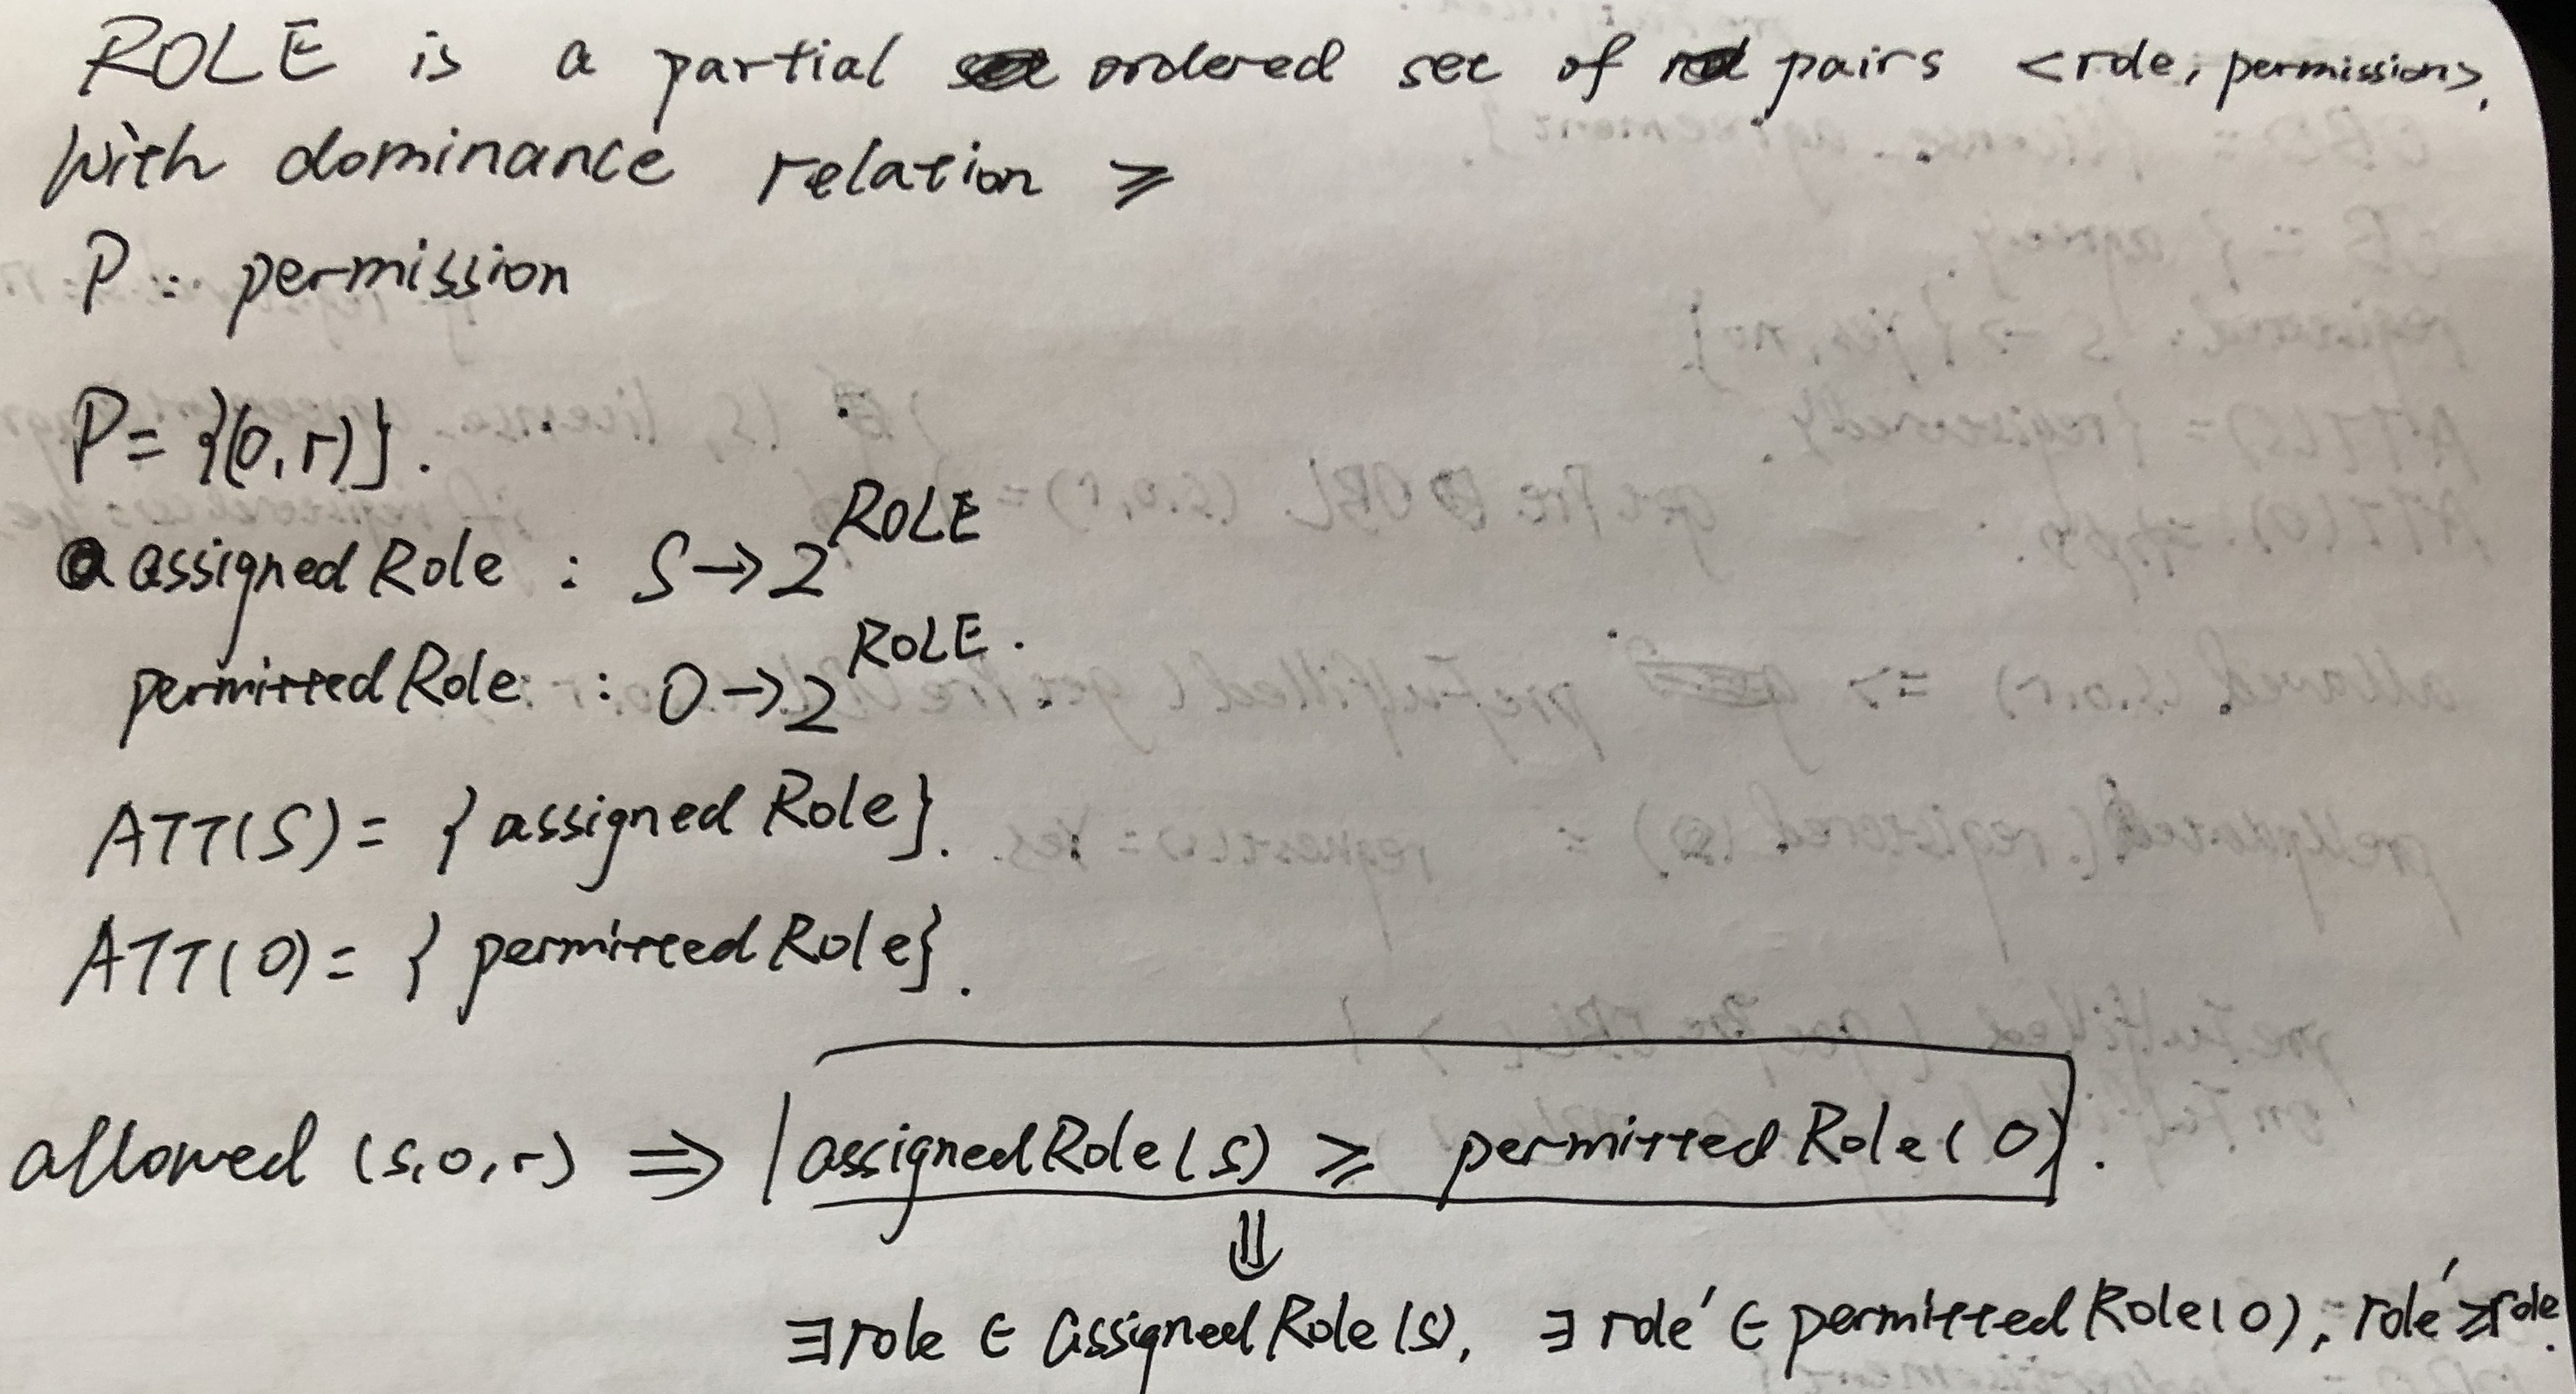 ROLE is a partial ordered set of pairs <role, permission>,
With dominance relation ≥
P : permission
P = {(o,r)}.
assignedRole : S→2^ROLE
permittedRole : O→2^ROLE.
ATT(S) = { assignedRole}.
ATT(O) = { permittedRole}.
allowed (s,o,r) ⇒ assignedRole(s) ≥ permittedRole(o).
⇓
∃role ∈ assignedRole(s), ∃ role′ ∈ permittedRole(o), role′ ≥ role.